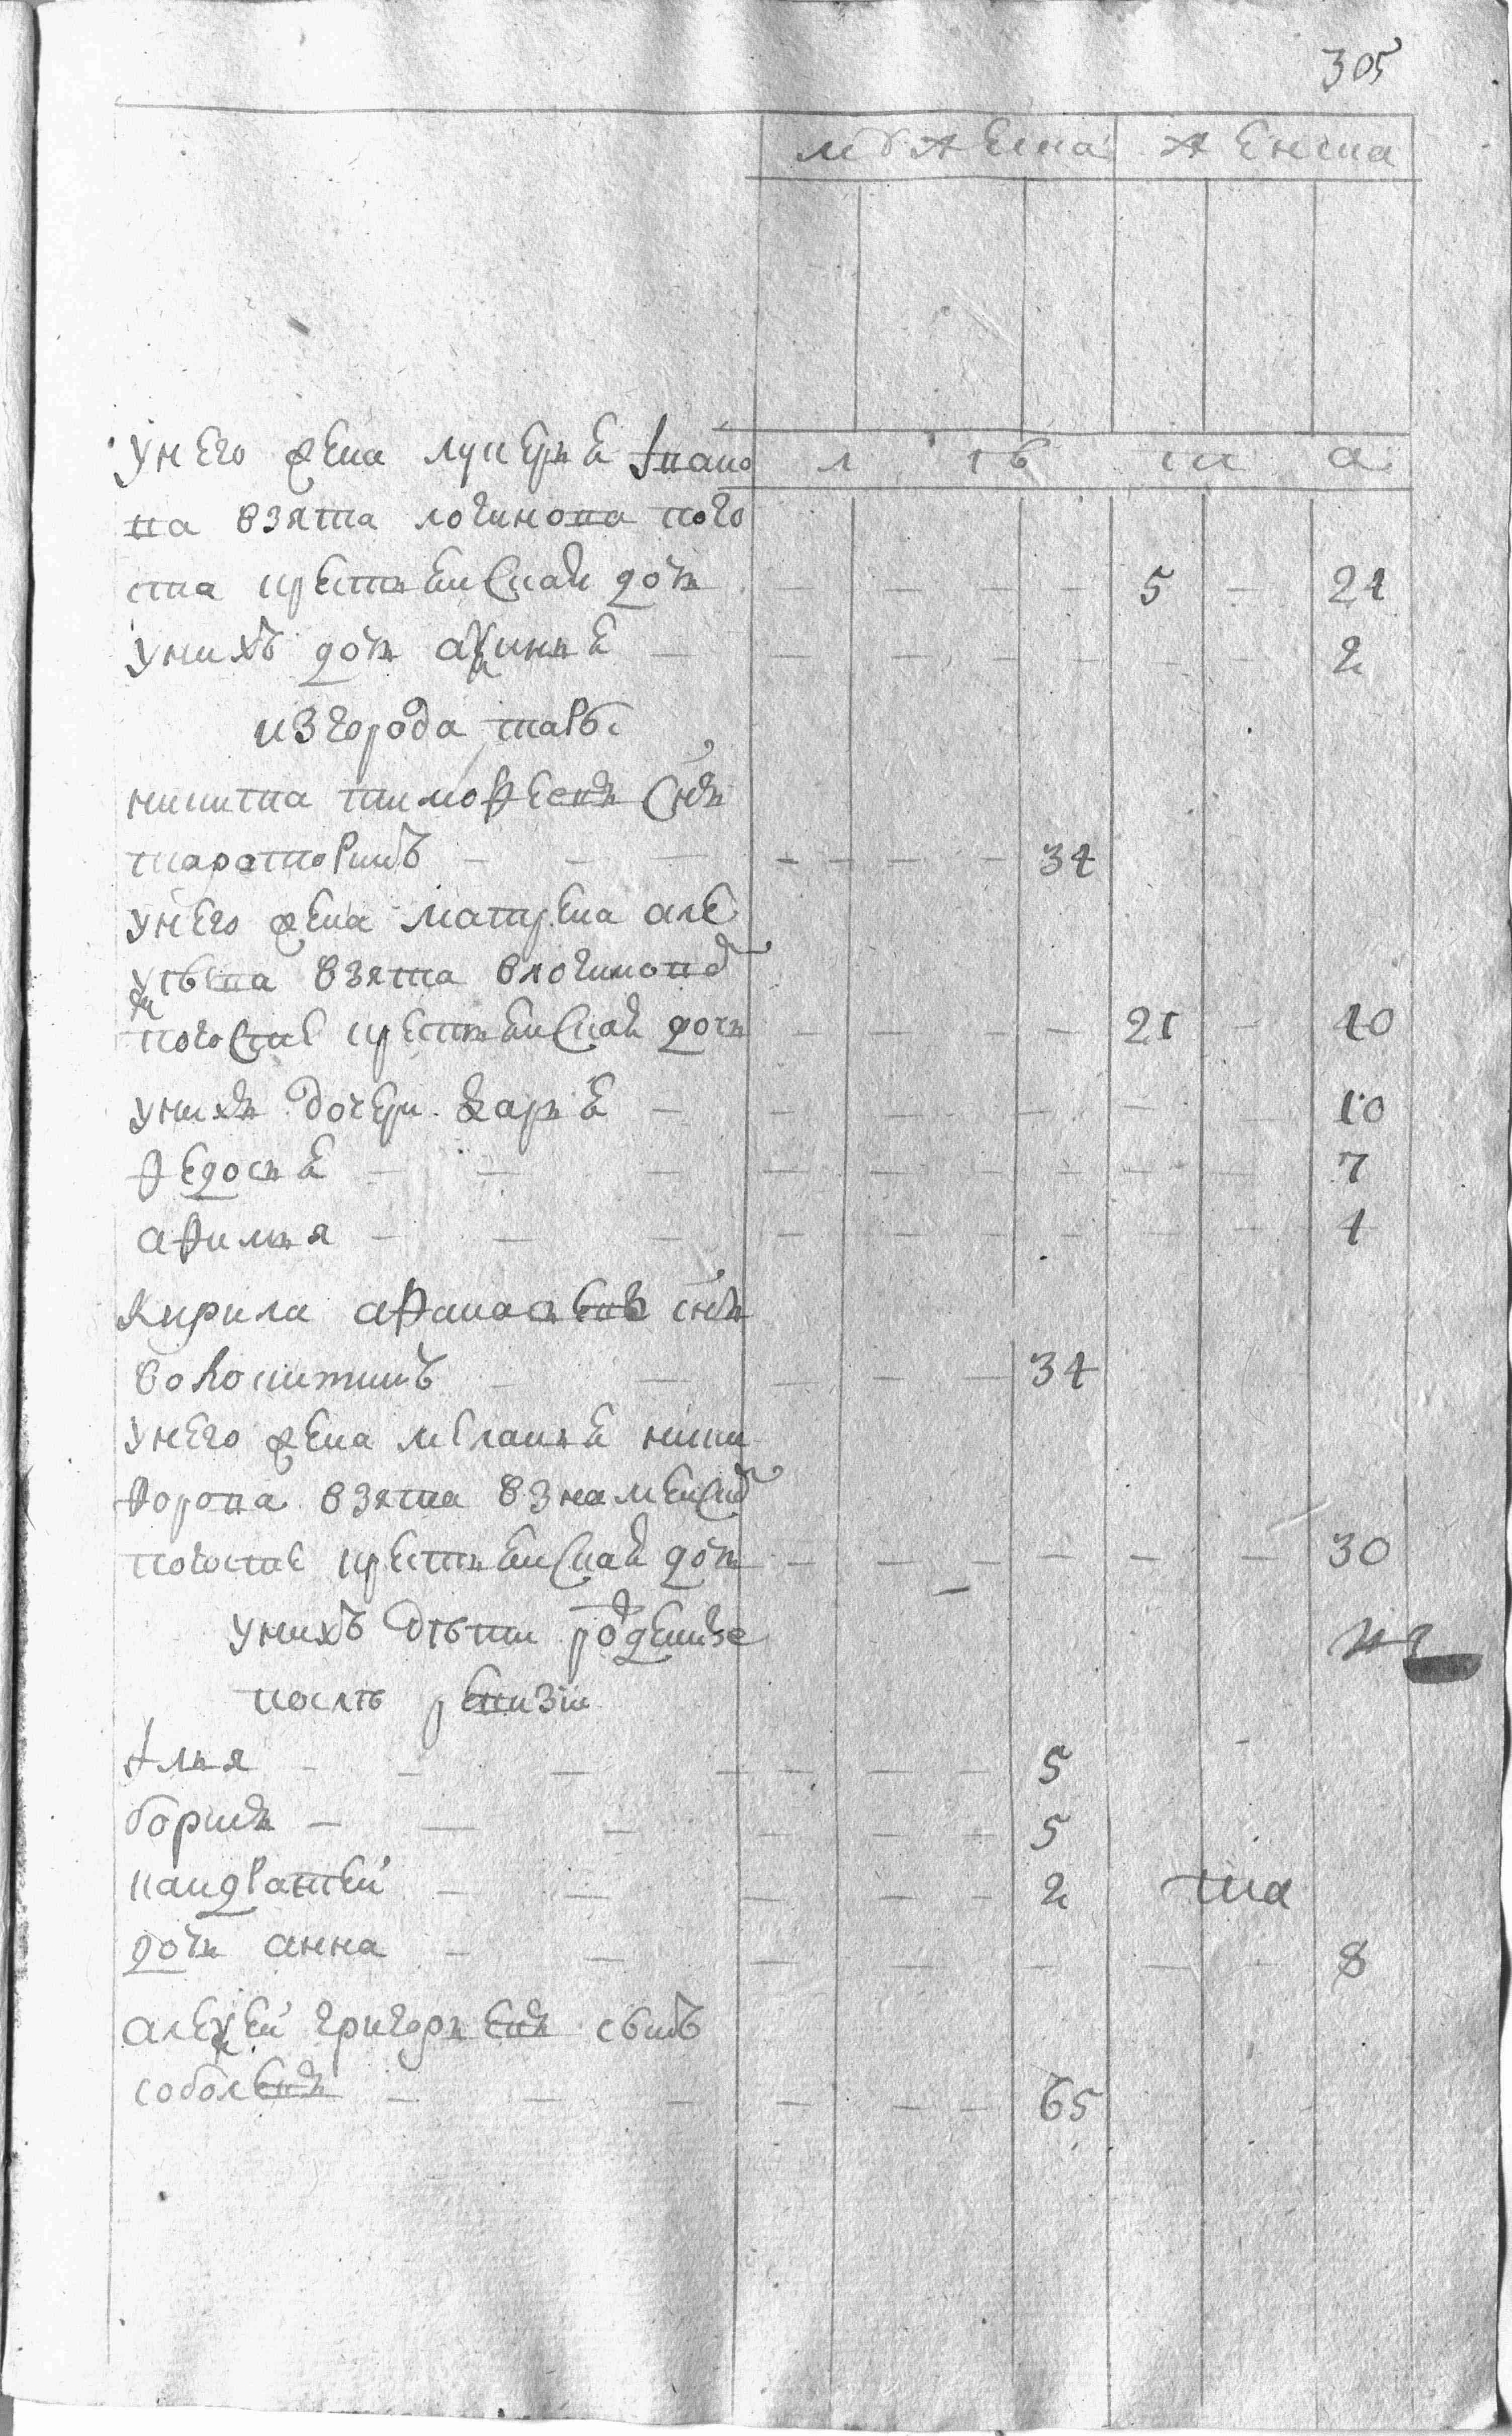 305
мужеска женска
у него жена лукерья ивано
л ѣ т а
ва взята логинова пого
ста крестьенская дочь 5 21
у нихъ дочь аксинья 2
из города тары
никита тимофеевъ снъ
тараторинъ 34
у него жена матрена але
ксѣева взята в логиновѣ
погосте крестьенская дочь 21 40
у нихъ дочери дарья 10
федосья 7
афимья 4
кирила афанасьевъ снъ
волокитинъ 34
у него жена меланья ники
форова взята в знаменскомъ
погосте крестьенская дочь 30
у нихъ дѣти рожденные
после ревизiи
илья 5
борисъ 5
кандратей 2 та
дочь анна 8
алексей григорьевъ сынъ
соболевъ 65